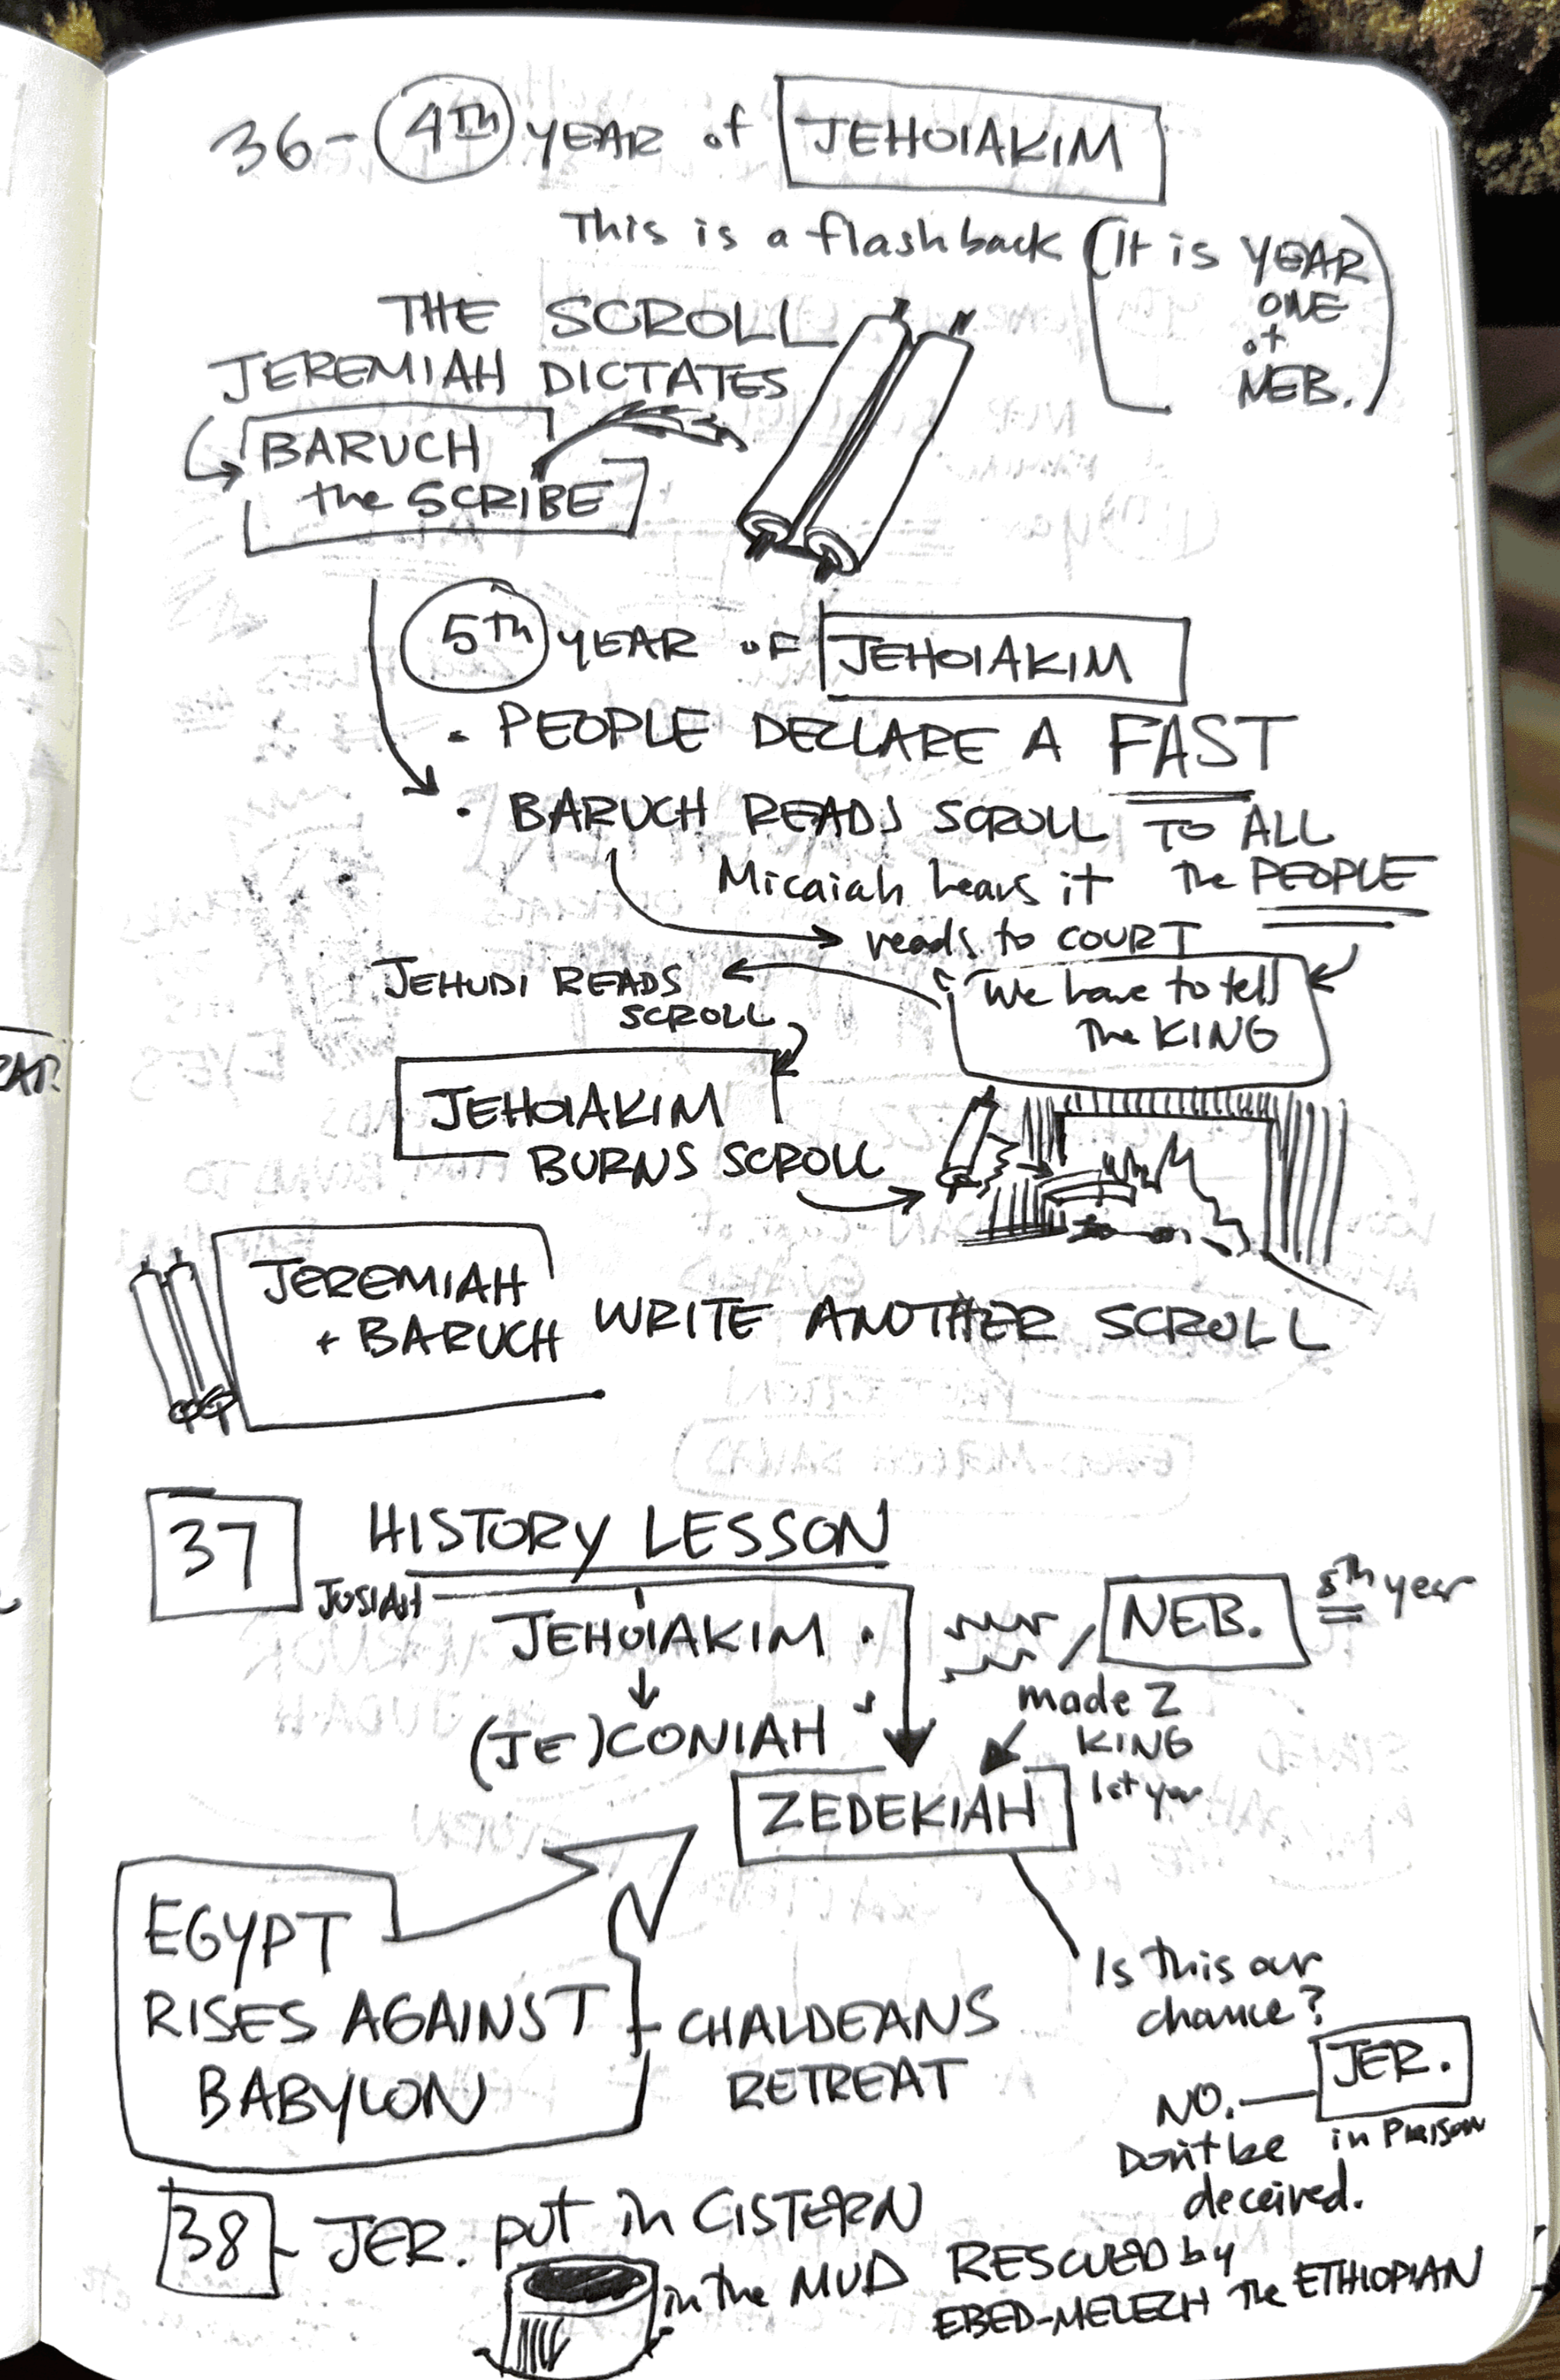 36- 4th YEAR of JEHOIAKIM
This is a flashback (It is YEAR
ONE
of
NEB.)
THE SCROLL
JEREMIAH DICTATES
BARUCH
the SCRIBE
5th YEAR OF JEHOIAKIM
• PEOPLE DECLARE A FAST
• BARUCH READS SCROLL TO ALL
the PEOPLE
Micaiah hears it
reads to COURT
We have to tell
the KING
JEHUDI READS
SCROLL
JEHOIAKIM
BURNS SCROLL
JEREMIAH
+ BARUCH WRITE ANOTHER SCROLL
37 HISTORY LESSON
JOSIAH
JEHOIAKIM
(JE)CONIAH
NEB. 8th year
made Z
KING
1st year
ZEDEKIAH
EGYPT
RISES AGAINST
BABYLON
CHALDEANS
RETREAT
Is this our
chance?
JER.
in PRISON
NO.
Don't be
deceived.
38 - JER. put in CISTERN
in the MUD RESCUED by
EBED-MELECH the ETHIOPIAN